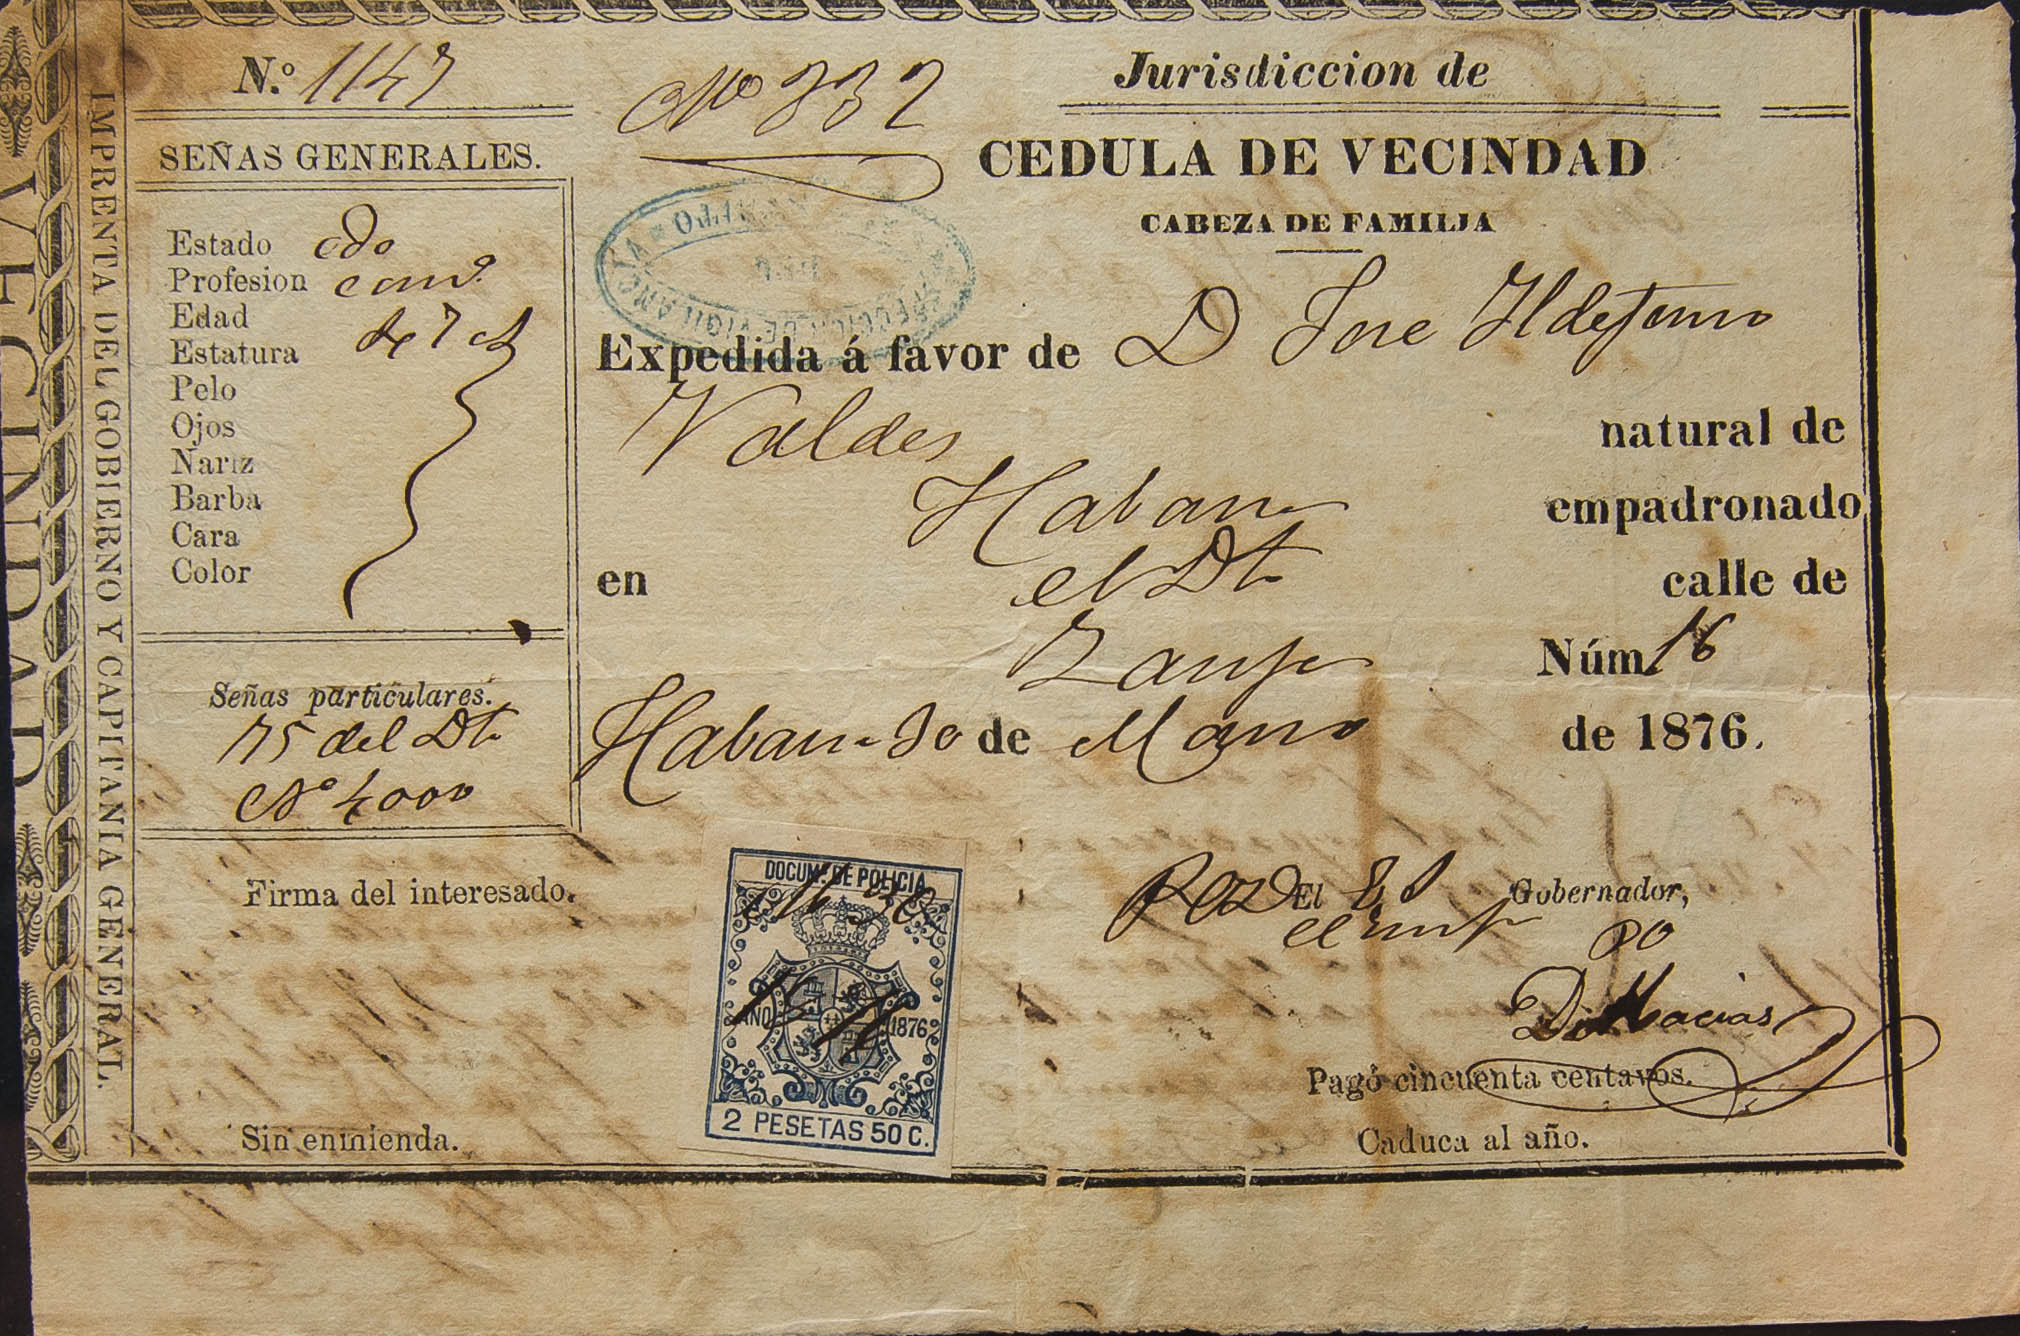 VECINDAD
IMPRENTA DEL GOBIERNO Y CAPITANIA GENERAL.
N.º 1147
Nº 332
Jurisdiccion de
SEÑAS GENERALES.
CEDULA DE VECINDAD
CABEZA DE FAMILIA
Estado cdo
Profesion
Edad
Estatura
Pelo
Ojos
Nariz
Barba
Cara
Color
Expedida á favor de D Jose Ildefonso
Valdes natural de
Habana empadronado
en el Dto calle de
Zanja Núm. 16
Habana 30 de Marzo de 1876.
Señas particulares.
175 del Dto
Nº 4000
Firma del interesado.
Sin enmienda.
DOCUM. DE POLICIA
AÑO 1876
2 PESETAS 50 C.
El Gobernador,
PO
D. Macias
Pagó cincuenta centavos.
Caduca al año.